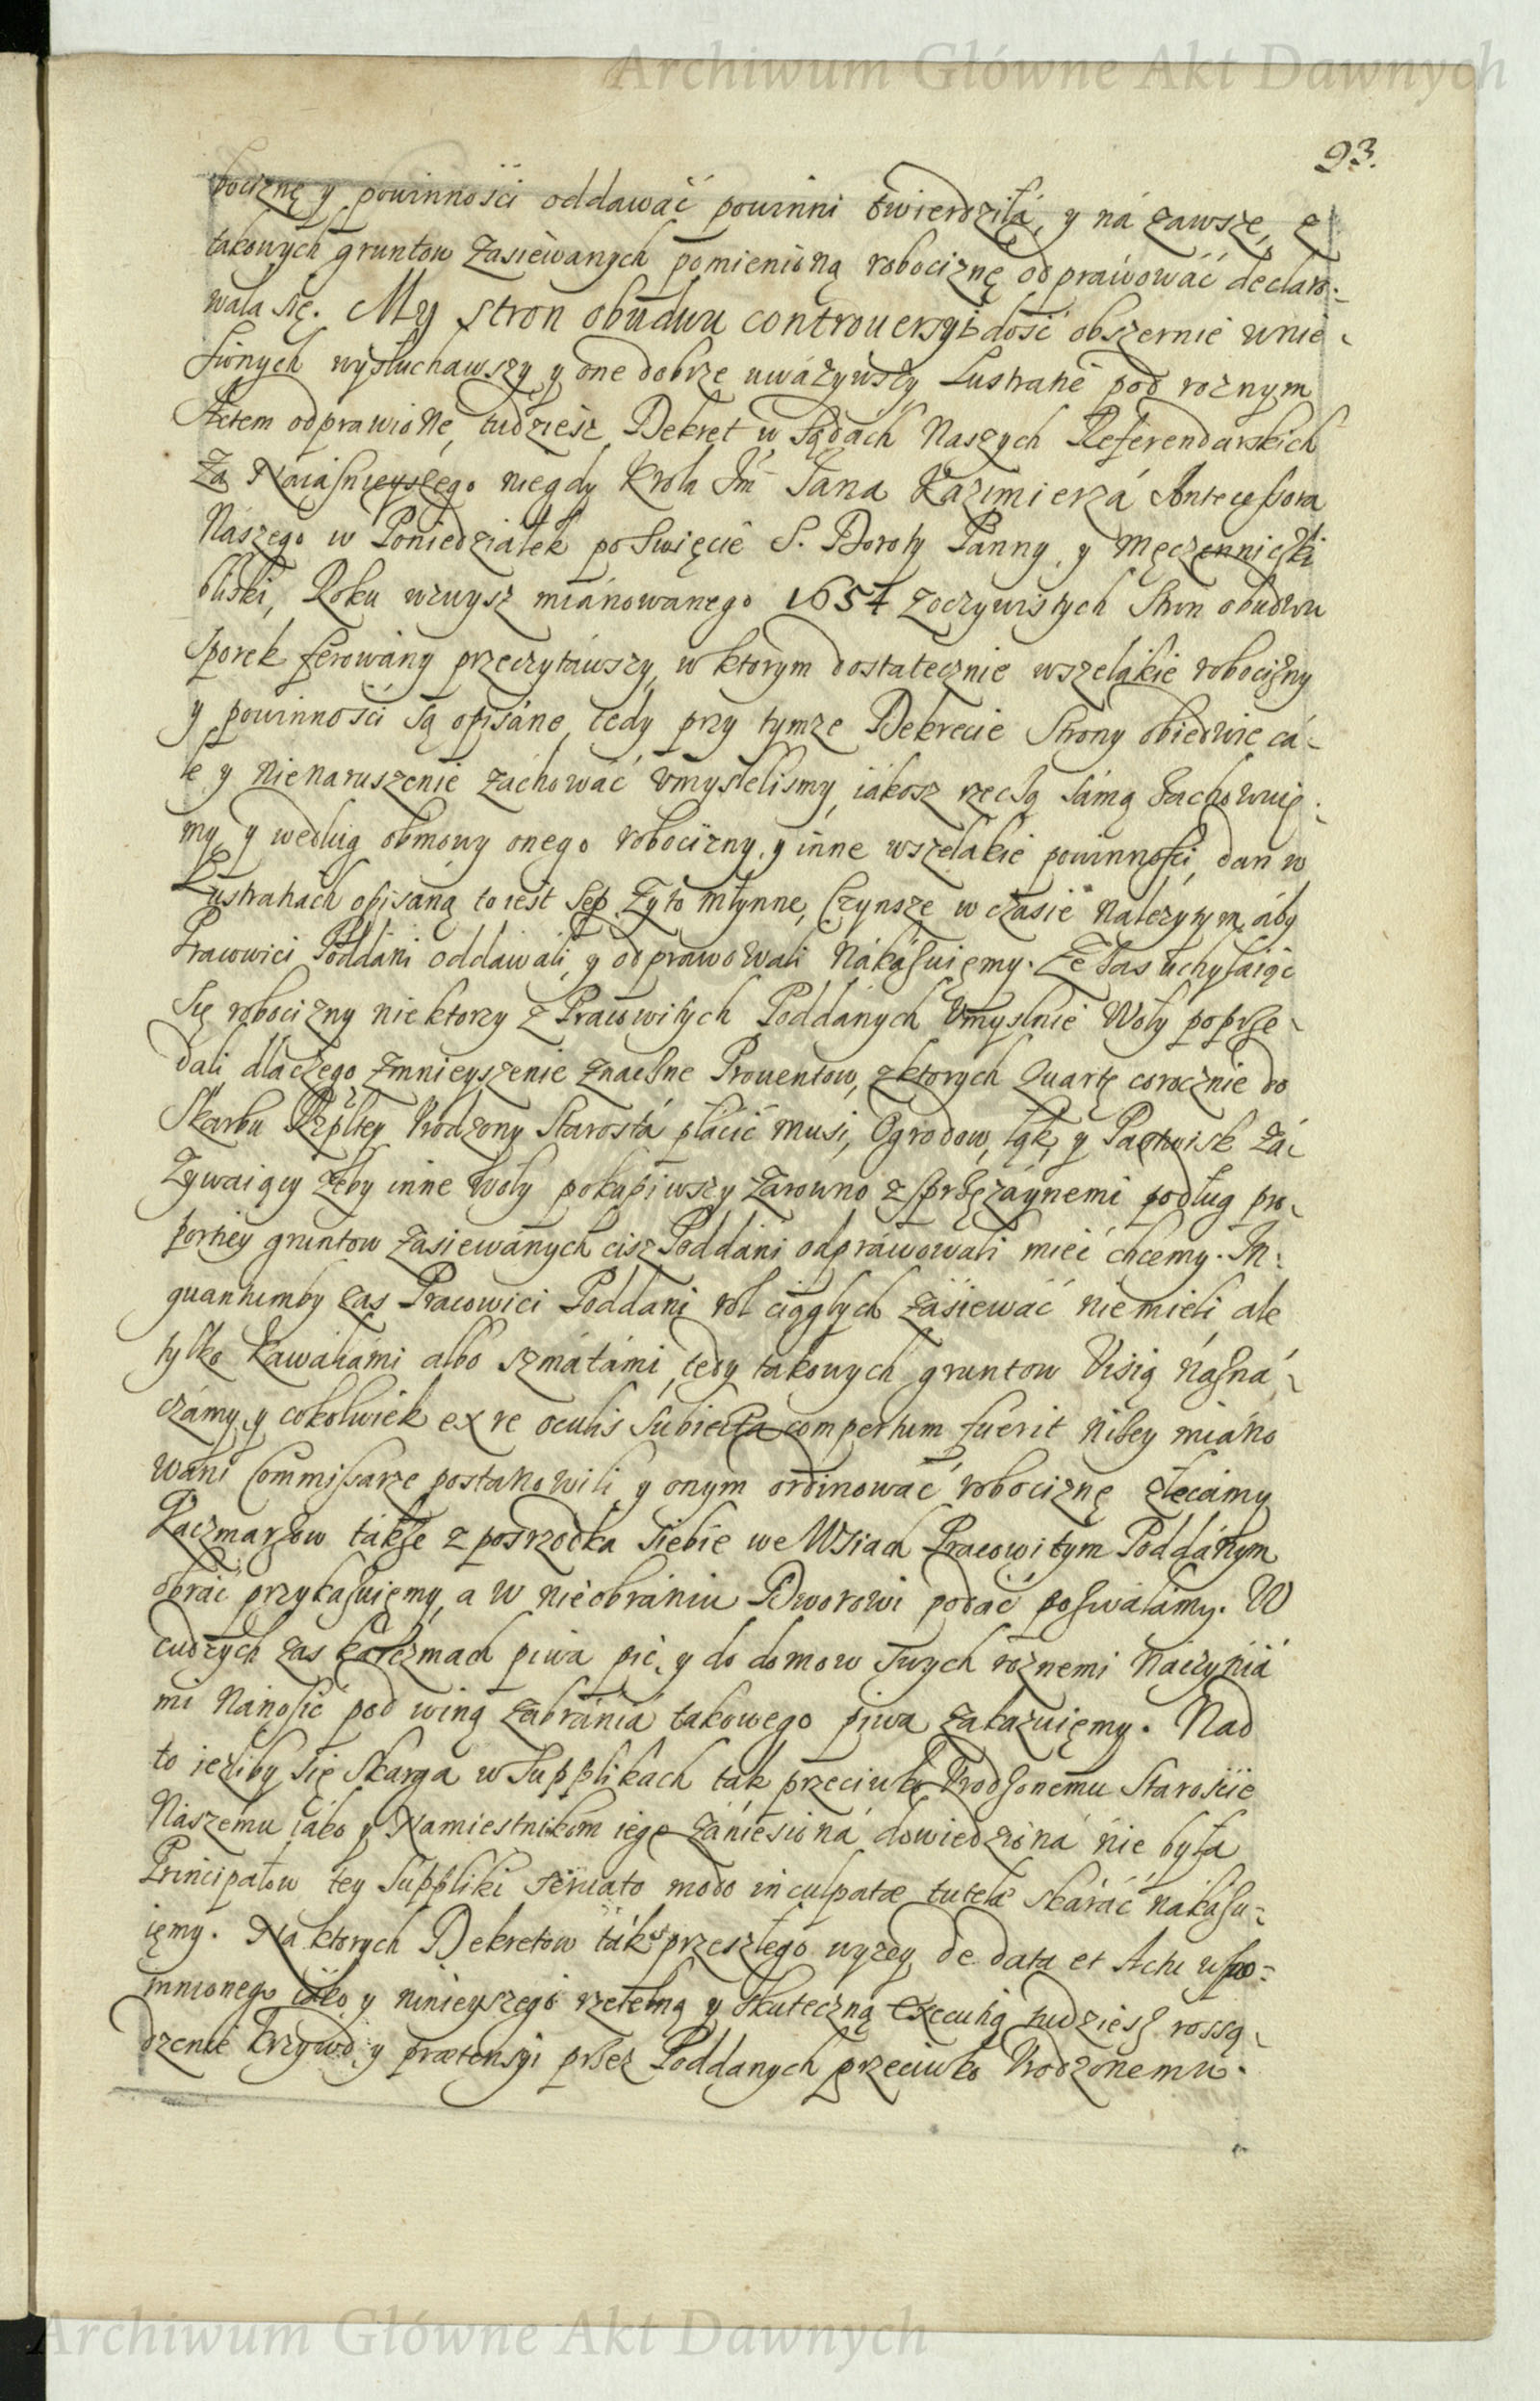 Archiwum Główne Akt Dawnych
93.
bociznę y powinności oddawać powinni twierdziłá, y ná zawsze, z
takowych gruntow zasiewanych pomienioną robociznę odprawować declaro-
wala się. My stron obudwu controuersyi dość obszernie wnie-
sionych wysłuchawszy y one dobrze uważywszy Lustratie pod roznym
Actem odprawione, tudziesz Dekret w Sądach Naszych Referendarskich
Za Naiaśnieyszego niegdy Krola Jm̃ Jana Kazimierzá Antecessora
Naszego w Poniedziałek po Swięcie S. Doroty Panny, y Męczenniczki
bliski, Roku wzwysz miánowanego 1654 z oczywistych Stron obudwu
Sporek ferowány przeczytáwszy, w ktorym dostatecznie wszelákie robocizny
y powinności są opisáne, tedy przy tymze Dekrecie Strony obiedwie cá-
łe y nienaruszenie záchować vmysleliśmy, iákosz rzeczą sámą zachowuię-
my, y według obmowy onego robocizny, y inne wszelákie powinności, dan w
Lustratiach opisáną to iest Sep Zyto młynne, Czynsze w czásie náleżytym áby
Pracowici Poddáni oddawali, y odprawowali nákázuięmy. Ze zas uchylaiąc
Się robocizny niektorzy z Pracowitych Poddánych Vmyslnie Woły poprze-
dali dlaczego zmnieyszenie znaczne Prouentow, z ktorych Quartę corocznie do
Skarbu Rzpltey Vrodzony Starostá płácić musi, Ogrodow, łąk, y Pastwisk zá-
zywaiący żeby inne woły pokupiwszy zarowno z sprzężáynemi podług pro-
portiey gruntow zásiewánych cisz Poddáni odpráwowali mieć chcemy. In-
quantumby zas Pracowici Poddani rol ciągłych zásiewać nie mieli ale
tylko kawałiámi albo szmátámi, tedy takowych gruntow Visią názná-
czámy, y cokolwiek ex re oculis subiecta compertum fuerit niżey miáno
wáni Commissarze postanowili y onym ordinować robociznę zlecámy
Kaczmarzow tákże z posrzodka siebie we Wsiach Pracowitym Poddánym
obráć przykázuięmy, a w nieobrániu Dworowi podáć pozwalámy. W
cudzych zas karczmach piwa pić, y do domow swych roznemi náczyniá
mi nánosić pod winą zabránia takowego piwa zakazuięmy. Nad
to ieżliby się Skarga w Supplikach tak przeciwko Vrodzonemu Staroście
Naszemu iáko y Namiestnikom iego zániesioná dowiedzioná nie była
Principałow tey Suppliki seruato modo inculpatæ tutelæ skáráć nákázu-
ięmy. Na ktorych Dekretow ták przeszłego wyzey de data et Actu wspo-
mnionego iáko y ninieyszego rzetelną y skuteczną Executią tudziesz rossą-
dzenie krzywd y prætensyi przez Poddanych przeciwko Vrodzonemu
Archiwum Główne Akt Dawnych